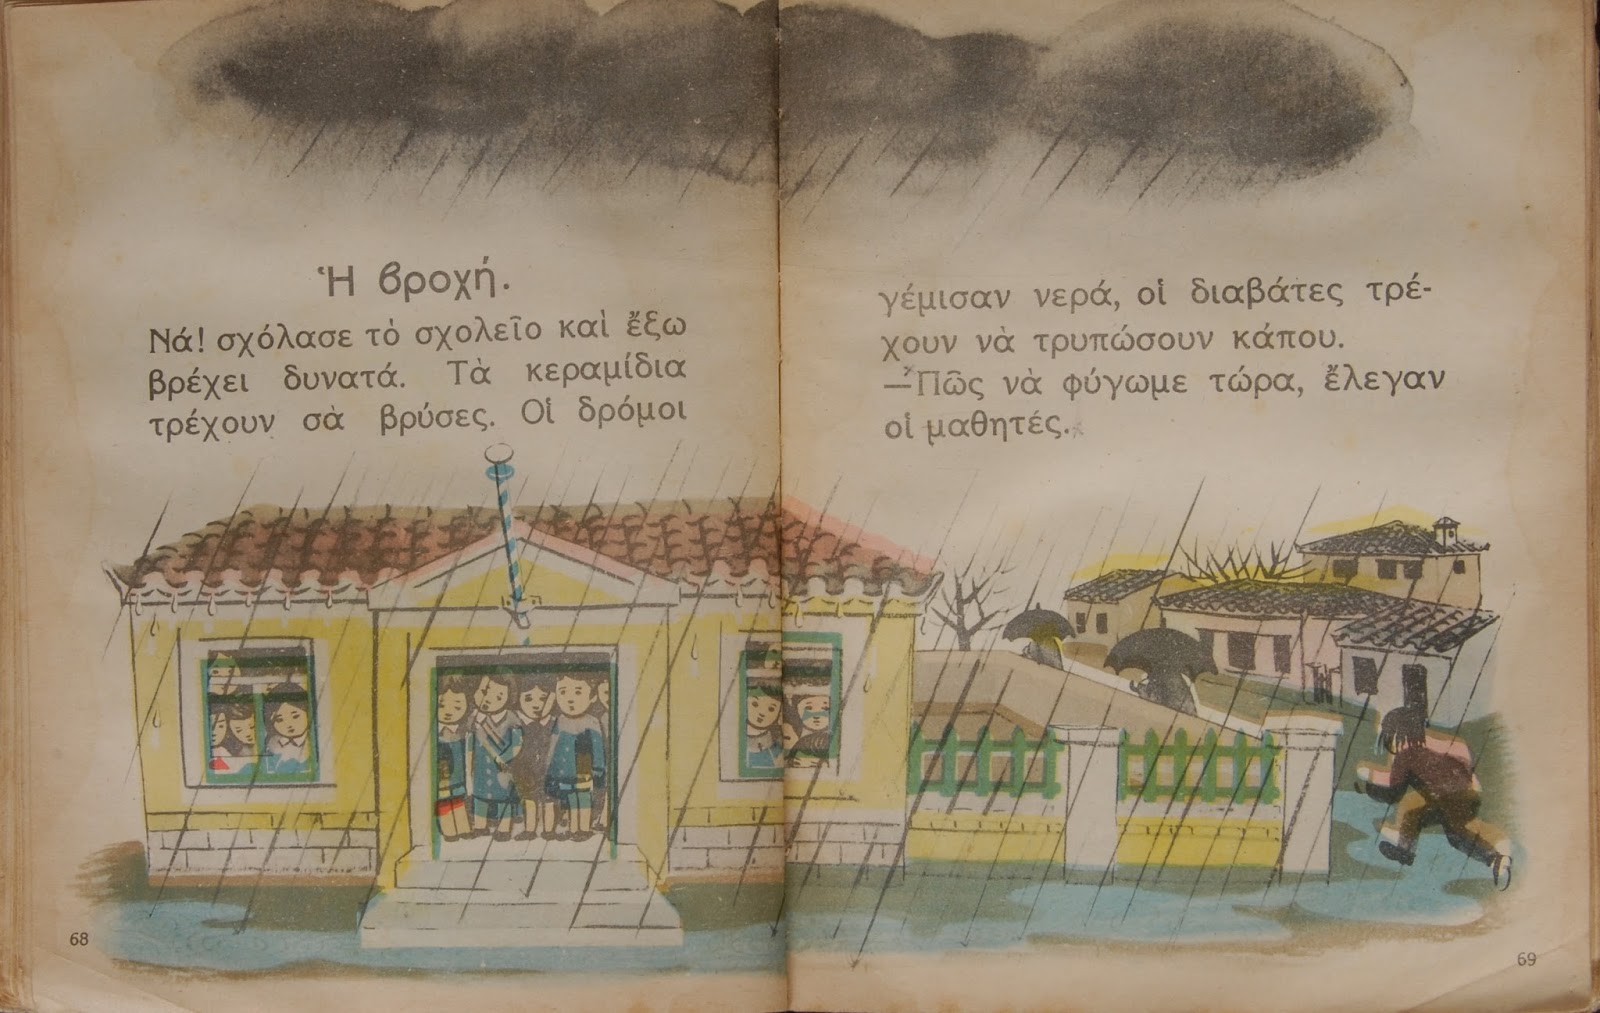 Ἡ βροχή.
Νά! σχόλασε τὸ σχολεῖο καὶ ἔξω
βρέχει δυνατά. Τὰ κεραμίδια
τρέχουν σὰ βρύσες. Οἱ δρόμοι
68
γέμισαν νερά, οἱ διαβάτες τρέ-
χουν νὰ τρυπώσουν κάπου.
—Πῶς νὰ φύγωμε τώρα, ἔλεγαν
οἱ μαθητές.
69